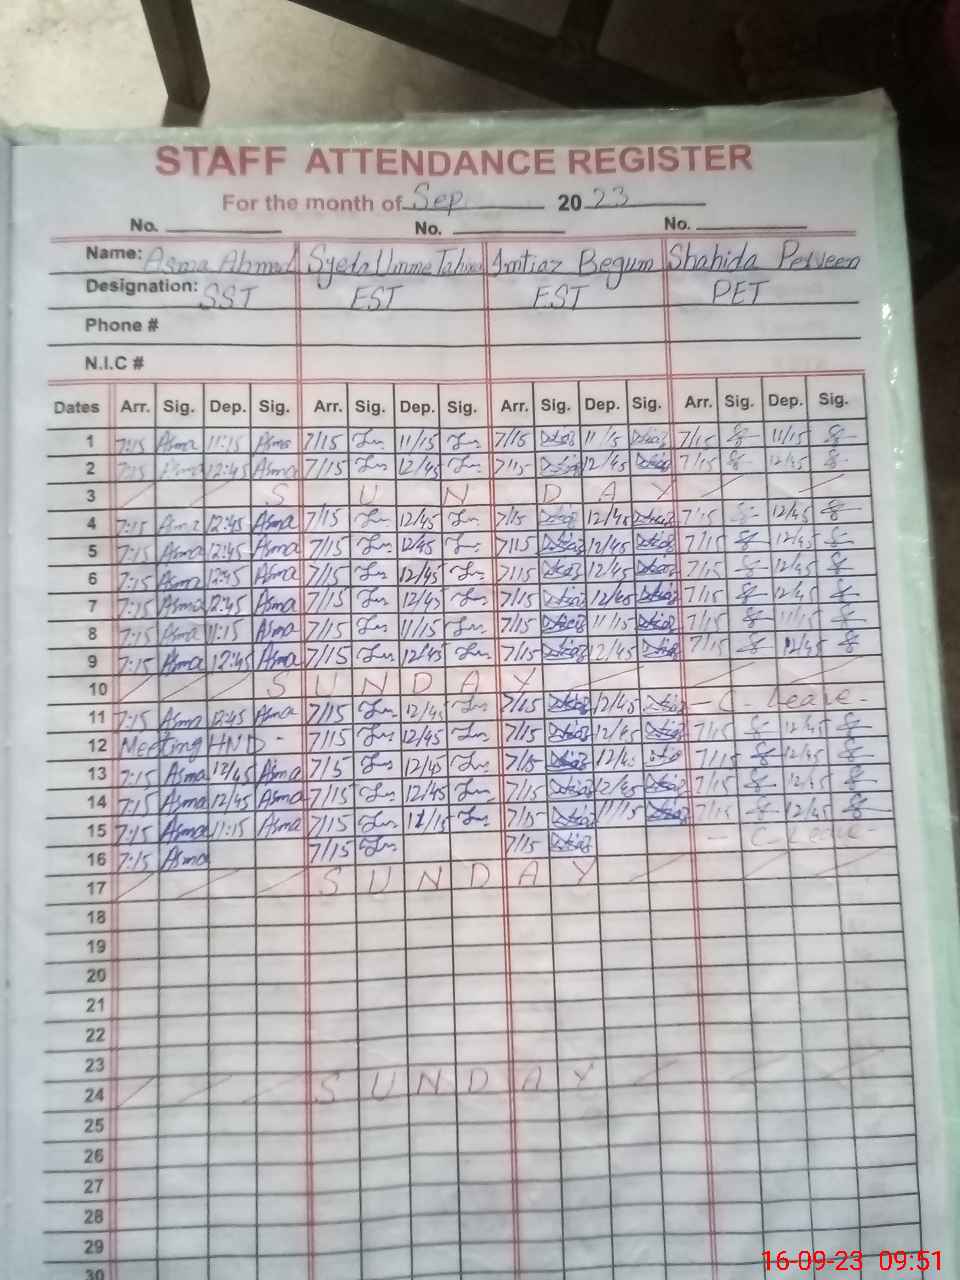 STAFF ATTENDANCE REGISTER
For the month of Sep 2023
No. No. No.
Name: Asma Ahmed Syeda Umme Imtiaz Begum Shahida Perveen
Designation: SST EST EST PET
Phone #
N.I.C #
Dates Arr. Sig. Dep. Sig. Arr. Sig. Dep. Sig. Arr. Sig. Dep. Sig. Arr. Sig. Dep. Sig.
1 7:15 Asma 11:15 Asma 7/15 11/15 7/15 11/15 7/15 11/15
2 7:15 Asma 12:45 Asma 7/15 12/45 7/15 12/45 7/15 12/45
3 S U N D A Y
4 7:15 Asma 12:45 Asma 7/15 12/45 7/15 12/45 7/15 12/45
5 7:15 Asma 12:45 Asma 7/15 12/45 7/15 12/45 7/15 12/45
6 7:15 Asma 12:45 Asma 7/15 12/45 7/15 12/45 7/15 12/45
7 7:15 Asma 12:45 Asma 7/15 12/45 7/15 12/45 7/15 12/45
8 7:15 Asma 11:15 Asma 7/15 11/15 7/15 11/15 7/15 11/15
9 7:15 Asma 12:45 Asma 7/15 12/45 7/15 12/45 7/15 12/45
10 S U N D A Y
11 7:15 Asma 12:45 Asma 7/15 12/45 7/15 12/45 - C - Leave -
12 Meeting HND - 7/15 12/45 7/15 12/45 7/15 12/45
13 7:15 Asma 12/45 Asma 7/5 12/45 7/15 12/45 7/15 12/45
14 7:15 Asma 12/45 Asma 7/15 12/45 7/15 12/45 7/15 12/45
15 7:15 Asma 11:15 Asma 7/15 11/15 7/15 11/15 7/15 12/45
16 7:15 Asma 7/15 7/15 - C - Leave -
17 S U N D A Y
18
19
20
21
22
23
24 S U N D A Y
25
26
27
28
29
30
16-09-23 09:51